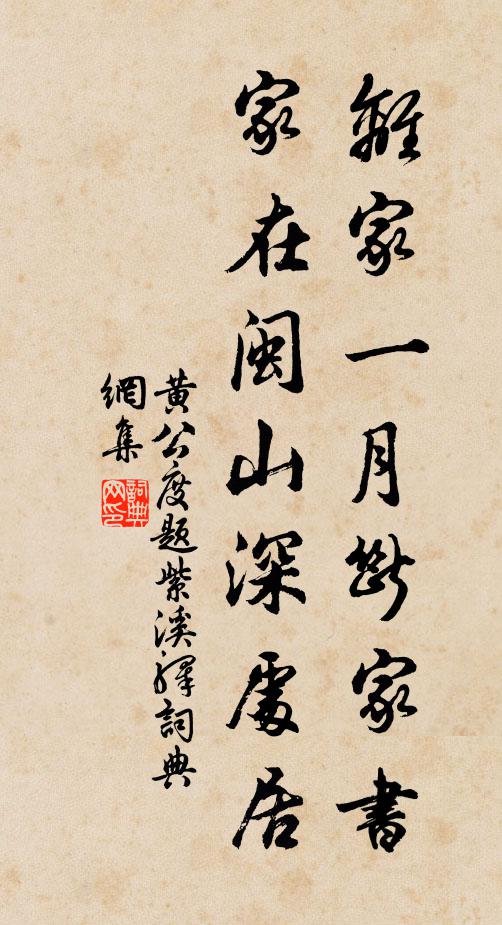 離家一月斷家書
家在閩山深處居
黃公度題紫溪驛詞典
網集
詞典
网印